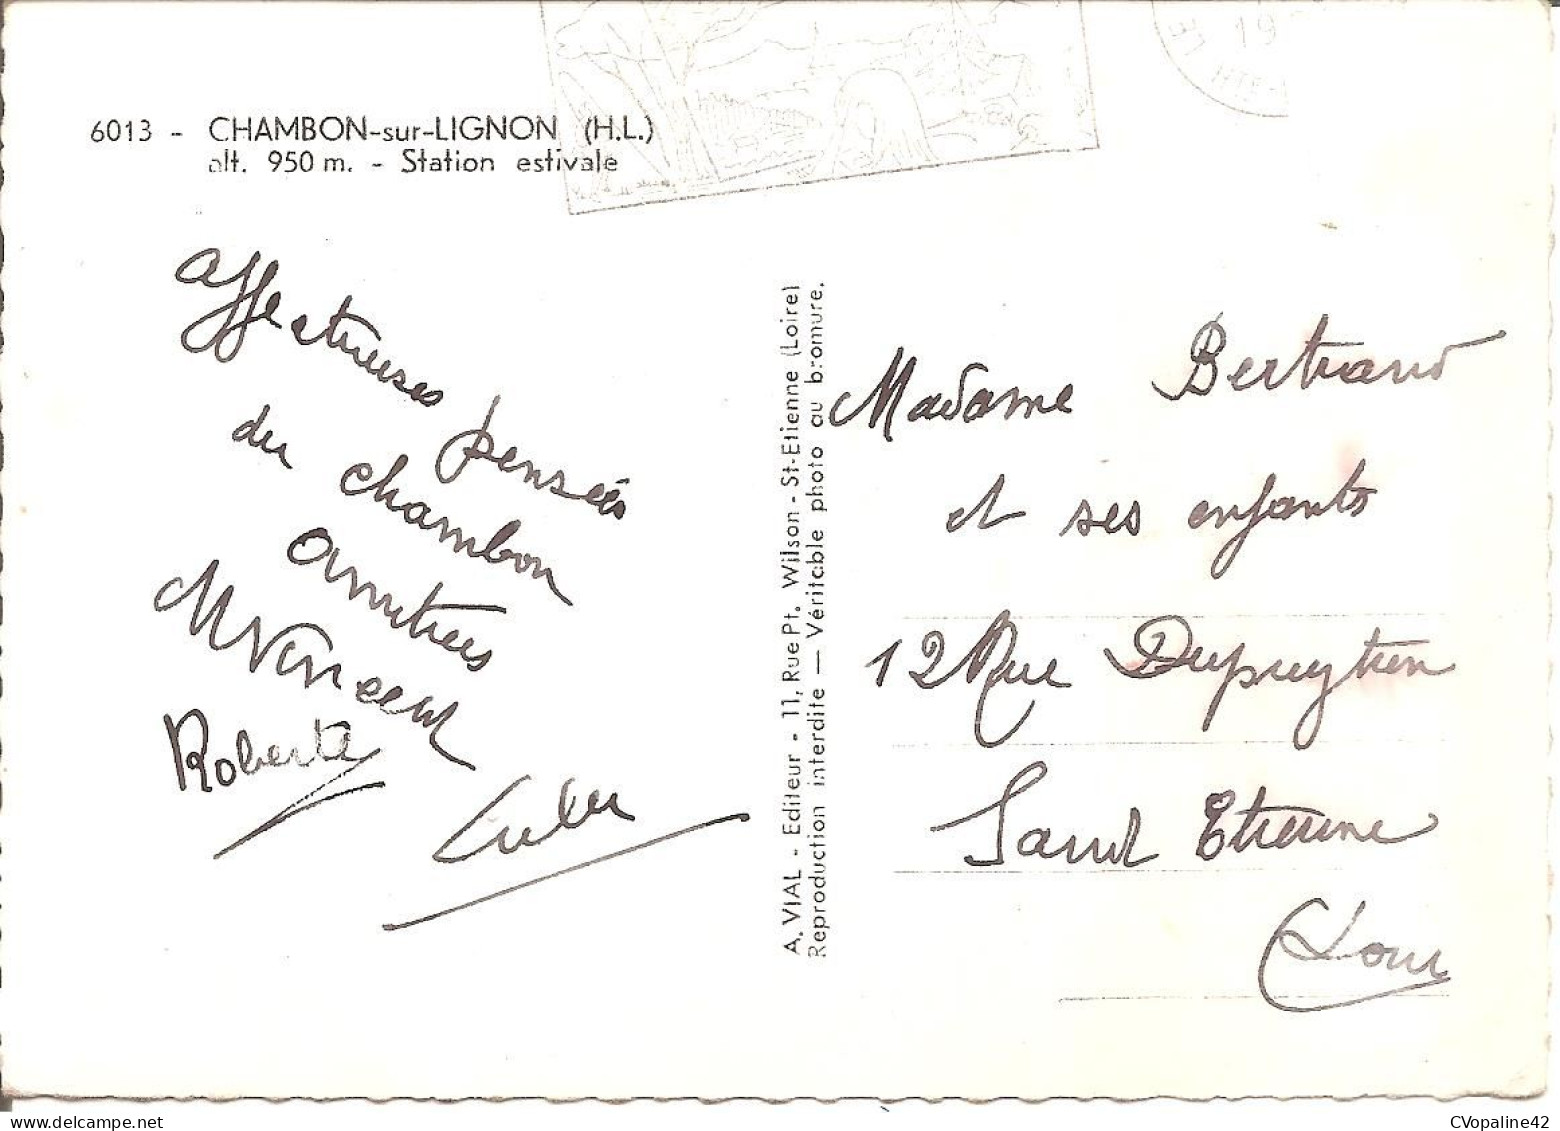 6013 - CHAMBON-sur-LIGNON (H.L.)
alt. 950 m. - Station estivale
19
LE
HTE-
Affectueuses pensées
du Chambon
Amitiés
M Vincent
Roberte
A. VIAL - Editeur - 11, Rue Pt. Wilson - St-Etienne (Loire)
Reproduction interdite — Véritable photo au bromure.
Madame Bertrand
et ses enfants
12 Rue Dupuytren
Saint Etienne
Loire
delcampe.net
CVopaline42